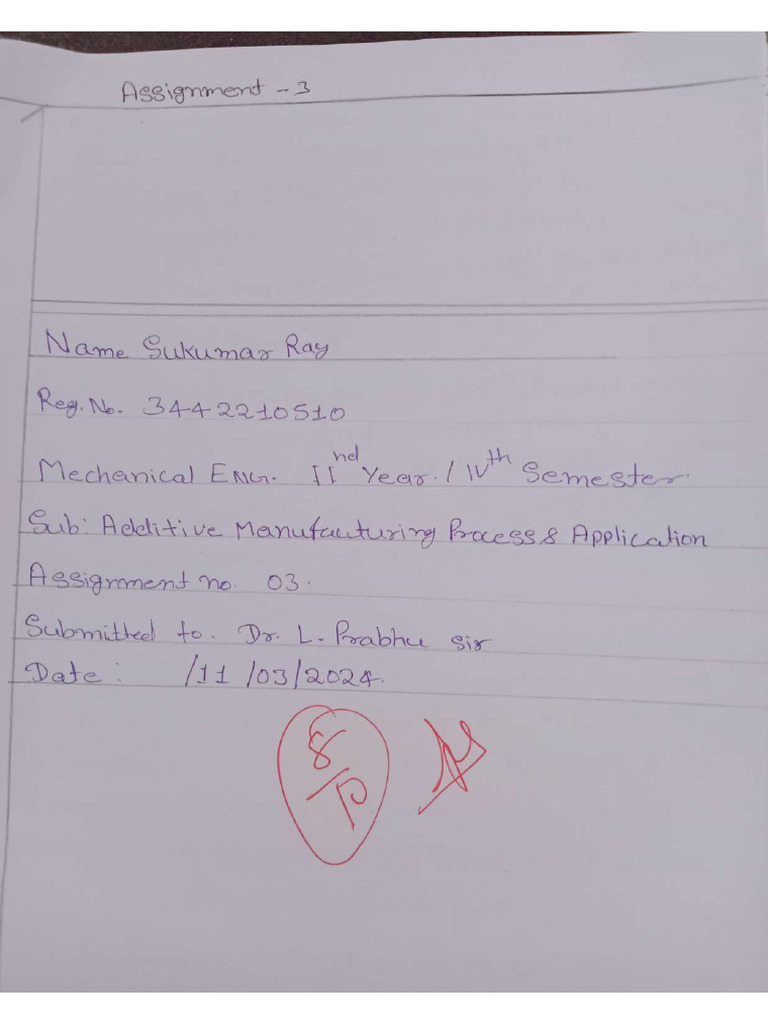 Assignment - 3
Name Sukumar Ray
Reg. No. 34422210510
Mechanical Eng. IInd Year. / IVth Semester
Sub: Additive Manufacturing Process & Application
Assignment no. 03.
Submitted to. Dr. L. Prabhu sir
Date : /11/03/2024.
8/10